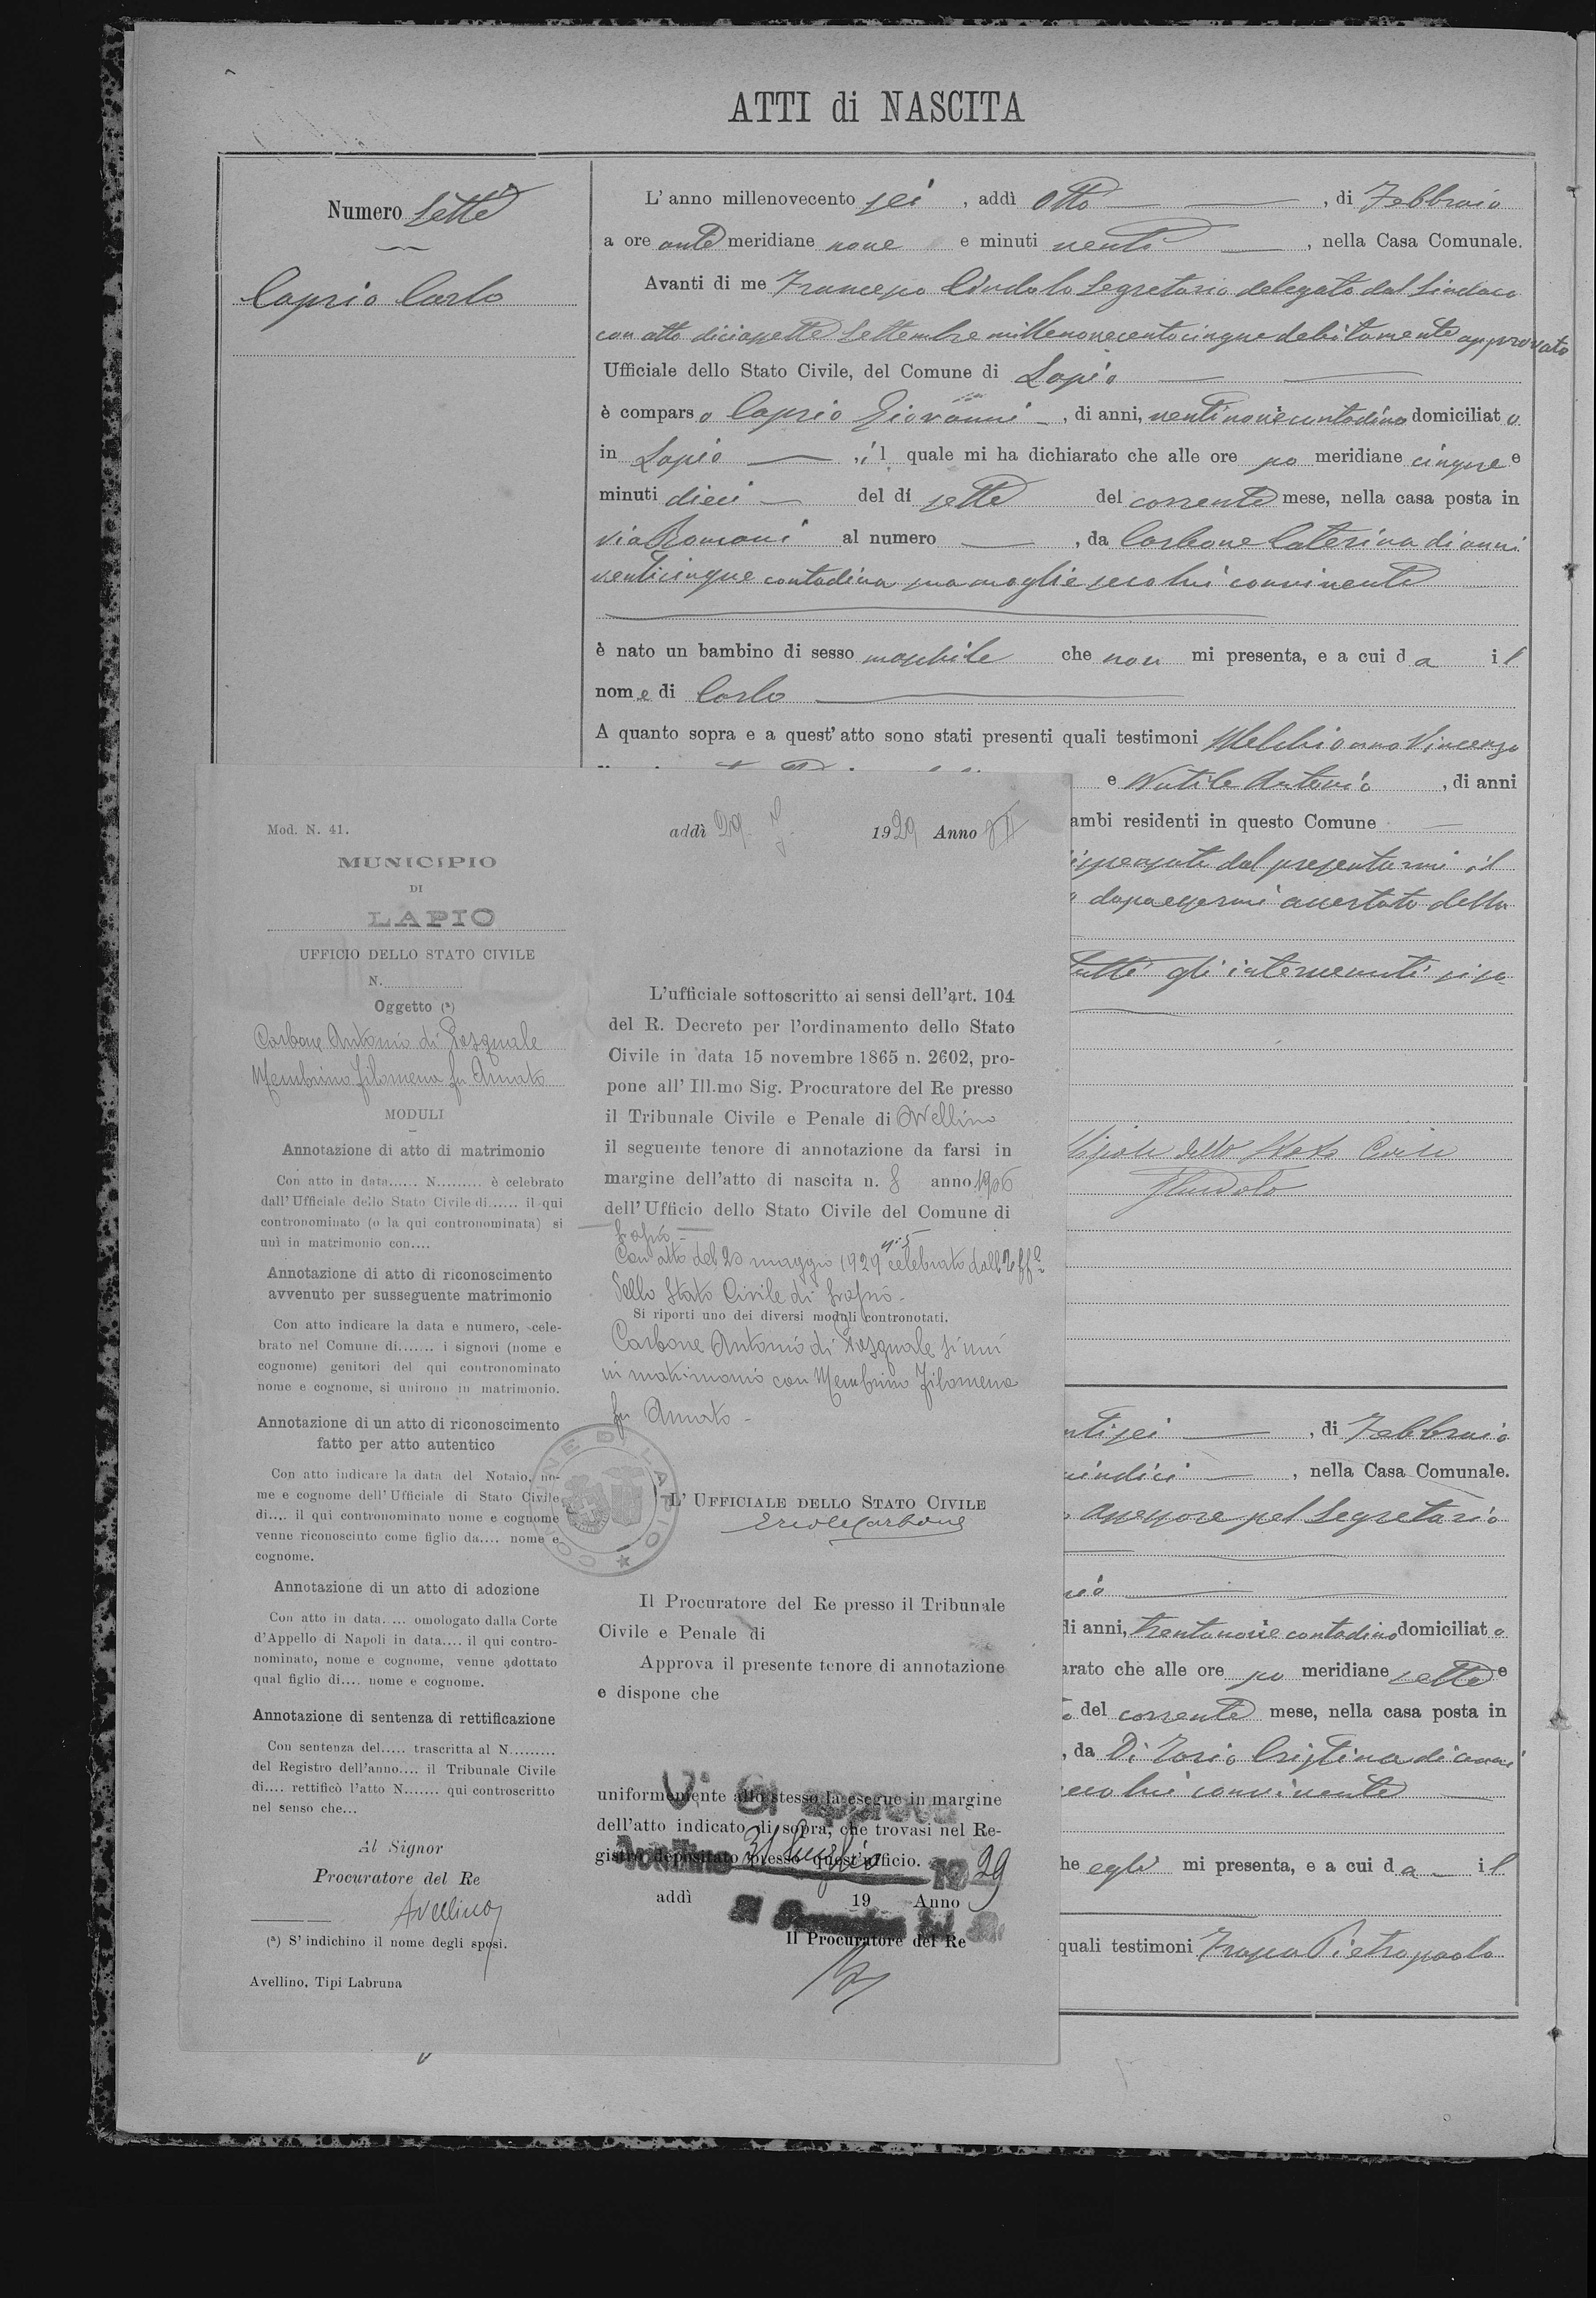 ATTI di NASCITA
Numero Sette
Caprio Carlo
L'anno millenovecento sei, addì otto, di Febbraio
a ore ante meridiane nove e minuti venti, nella Casa Comunale.
Avanti di me Francesco Cindolo Segretario delegato dal Sindaco
con atto diciassette Settembre millenovecentocinque debitamente approvato
Ufficiale dello Stato Civile, del Comune di Lapio
è comparso Caprio Giovanni, di anni, ventinove contadino domiciliato
in Lapio, il quale mi ha dichiarato che alle ore po meridiane cinque e
minuti dieci del dì sette del corrente mese, nella casa posta in
via Romani al numero, da Carbone Caterina di anni
venticinque contadina sua moglie seco lui convivente
è nato un bambino di sesso maschile che non mi presenta, e a cui da il
nome di Carlo
A quanto sopra e a quest'atto sono stati presenti quali testimoni Melchionno Vincenzo
e Nutile Antonio, di anni
ambi residenti in questo Comune
dal presentarmi il
accertato della
tutti gli intervenuti
dello Stato Civile
FCindolo
ntisei, di Febbraio
uindici, nella Casa Comunale.
assessore pel Segretario
di anni, trentanove contadino domiciliato
arato che alle ore po meridiane sette e
del corrente mese, nella casa posta in
, da Di Iorio Cristina di anni
seco lui convivente
he egli mi presenta, e a cui da il
quali testimoni Pietropaolo
Mod. N. 41.
MUNICIPIO
DI
LAPIO
UFFICIO DELLO STATO CIVILE
N.
Oggetto (ª)
Carbone Antonio di Pasquale
Membrino Filomena fu Amato
MODULI
Annotazione di atto di matrimonio
Con atto in data...... N......... è celebrato
dall'Ufficiale dello Stato Civile di...... il qui
contronominato (o la qui contronominata) si
unì in matrimonio con....
Annotazione di atto di riconoscimento
avvenuto per susseguente matrimonio
Con atto indicare la data e numero, cele-
brato nel Comune di....... i signori (nome e
cognome) genitori del qui contronominato
nome e cognome, si unirono in matrimonio.
Annotazione di un atto di riconoscimento
fatto per atto autentico
Con atto indicare la data del Notaio, no-
me e cognome dell'Ufficiale di Stato Civile
di.... il qui contronominato nome e cognome
venne riconosciuto come figlio da.... nome e
cognome.
Annotazione di un atto di adozione
Con atto in data..... omologato dalla Corte
d'Appello di Napoli in data.... il qui contro-
nominato, nome e cognome, venne adottato
qual figlio di.... nome e cognome.
Annotazione di sentenza di rettificazione
Con sentenza del..... trascritta al N.........
del Registro dell'anno.... il Tribunale Civile
di.... rettificò l'atto N....... qui controscritto
nel senso che...
Al Signor
Procuratore del Re
Avellino
(ª) S'indichino il nome degli sposi.
Avellino, Tipi Labruna
addì 29 1929 Anno
L'ufficiale sottoscritto ai sensi dell'art. 104
del R. Decreto per l'ordinamento dello Stato
Civile in data 15 novembre 1865 n. 2602, pro-
pone all'Ill.mo Sig. Procuratore del Re presso
il Tribunale Civile e Penale di Avellino
il seguente tenore di annotazione da farsi in
margine dell'atto di nascita n. 8 anno 1906
dell'Ufficio dello Stato Civile del Comune di
Lapio
Con atto del 20 maggio 1929 n° 5 celebrato dall'Uff.
dello Stato Civile di Lapio
Si riporti uno dei diversi moduli contronotati.
Carbone Antonio di Pasquale si unì
in matrimonio con Membrino Filomena
fu Amato
COMUNE DI LAPIO
L'UFFICIALE DELLO STATO CIVILE
Ercole Carbone
Il Procuratore del Re presso il Tribunale
Civile e Penale di
Approva il presente tenore di annotazione
e dispone che
V° Si approva
uniformemente allo stesso la esegue in margine
dell'atto indicato di sopra, che trovasi nel Re-
gistro depositato presso quest'ufficio.
Avellino 31 Luglio 1929
addì 19 Anno
Il Procuratore del Re
Il Procuratore del Re